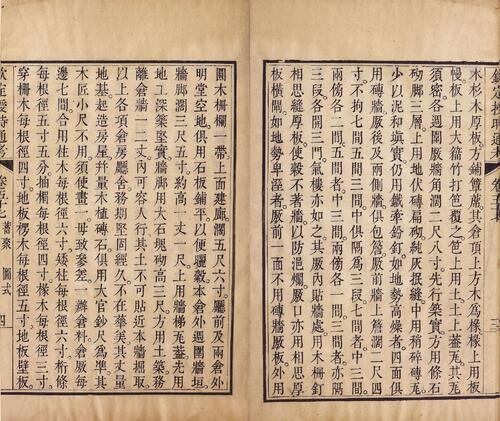 木杉木厚板方鋪簟蓆其倉頂上方木爲椽椽上用
幔板上用大貓竹打笆覆之笆上用土土上葢瓦其瓦
須密各週圍厫牆角濶二尺八寸先行築實方用條石
砌腳三層上用地伏磚扁砌純灰抿縫中用稍碎磚瓦
少以泥和填實仍用鐵牽鈐釘如地勢高燥者四面俱
用磚牆厫後及兩側牆俱包簷厫前牆上簷濶二尺四
寸不拘七間五間三間中俱隔爲三段七間者中三間
兩傍各二間五間者中三間兩傍各一間三間者亦隔
三段各開三門氣樓亦如之其厫內貼牆處用木柵釘
相思縫厚板使穀不著牆以防浥爛厫口亦用相思厚
板橫閘如地勢卑溼者厫前一面不用磚牆厫板外用
圓木柵欄一帶上面建廊濶五尺六寸厫前及兩倉外
明堂空地俱用石板鋪平以便曬穀本倉外週圍牆垣
牆腳濶三尺五寸約高一丈一尺上用牆梯瓦葢先用
地工深築堅實牆腳用大石塊砌高三尺方用土築務
離倉牆一二丈內可容人行其土不可貼近本牆掘取
以上各項倉房廳舍務期堅固經久不在華美其丈量
地基起造房屋并量木植磚石俱用大官鈔尺爲準其
木匠小尺不用須使畫一毋致參差一辦倉料倉厫每
邊七間合用柱木每根徑六寸矮柱每根徑六寸桁條
每根徑五寸五分抽楣每根徑六寸椽木每根徑三寸
穿柵木每根徑四寸地板楞木每根徑五寸地板壁板
欽定授時通考 卷五十七 蓄聚 圖式 四